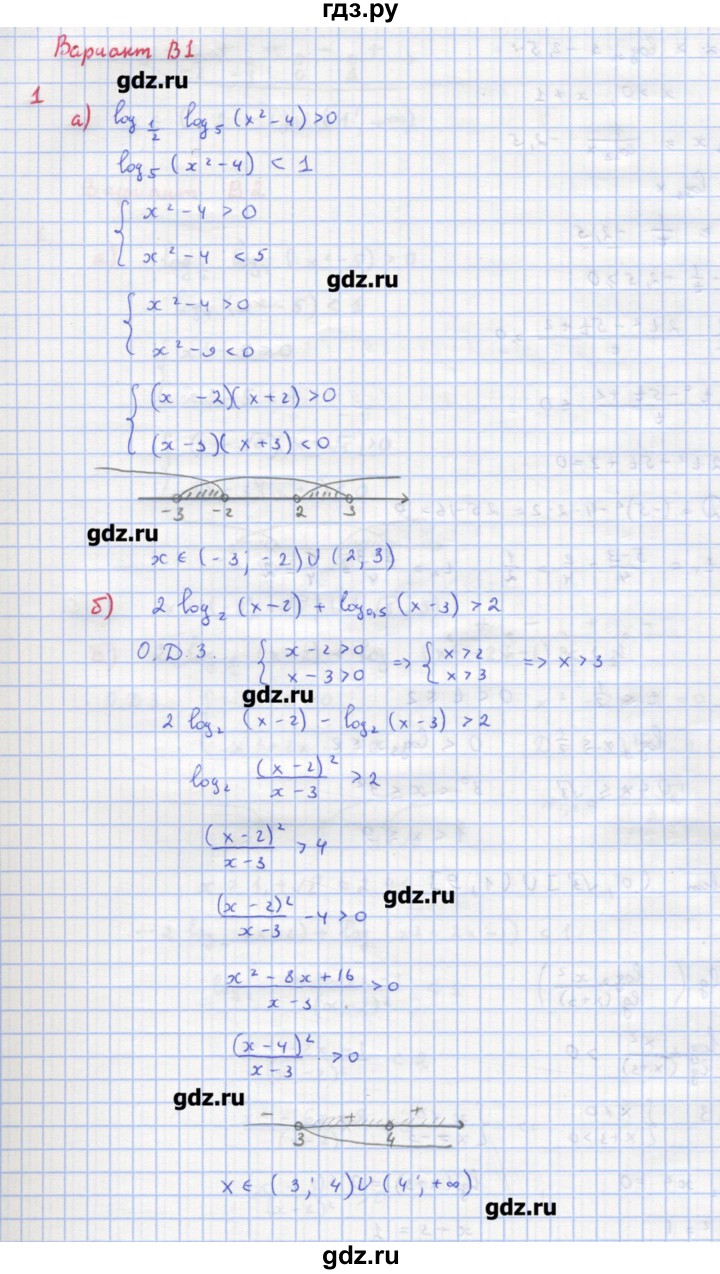 гдз.ру
Вариант В1
gdz.ru
1
а) log_{1/2} log_5 (x² - 4) > 0
log_5 (x² - 4) < 1
{ x² - 4 > 0
x² - 4 < 5
gdz.ru
{ x² - 4 > 0
x² - 9 < 0
{ (x - 2)(x + 2) > 0
(x - 3)(x + 3) < 0
-3 -2 2 3
gdz.ru
x ∈ (-3; -2) ∪ (2, 3)
б) 2 log_2 (x - 2) + log_{0,5} (x - 3) > 2
О.Д.З. { x - 2 > 0 => { x > 2 => x > 3
x - 3 > 0 x > 3
gdz.ru
2 log_2 (x - 2) - log_2 (x - 3) > 2
log_2 (x - 2)²/(x - 3) > 2
(x - 2)²/(x - 3) > 4
gdz.ru
(x - 2)²/(x - 3) - 4 > 0
(x² - 8x + 16)/(x - 3) > 0
(x - 4)²/(x - 3) > 0
gdz.ru
- + +
3 4
x ∈ (3; 4) ∪ (4; +∞)
gdz.ru
gdz.ru